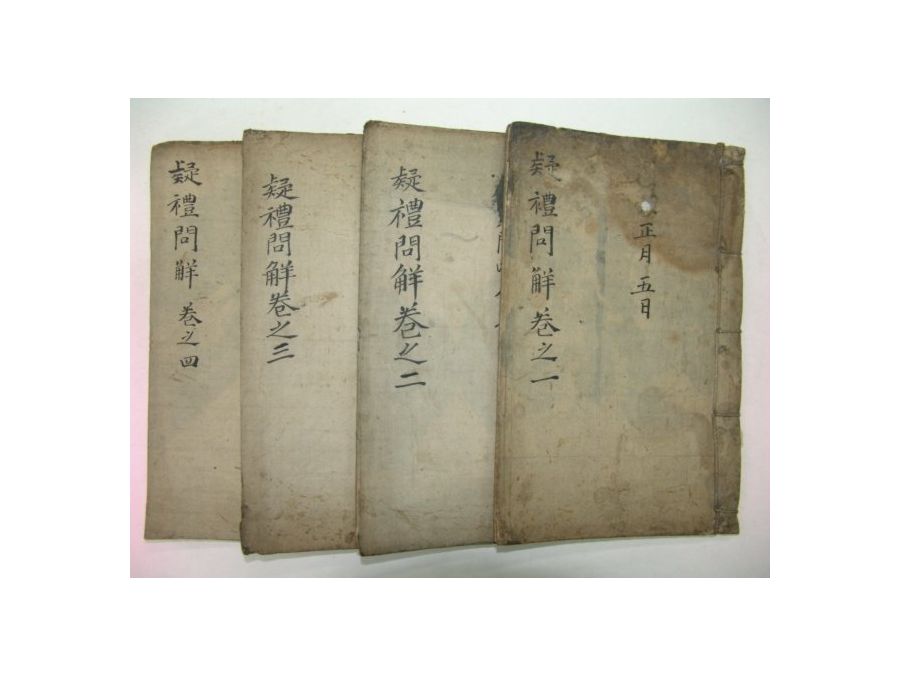 正月五日
疑禮問解卷之一
疑禮問解卷之二
疑禮問解卷之三
疑禮問解卷之四